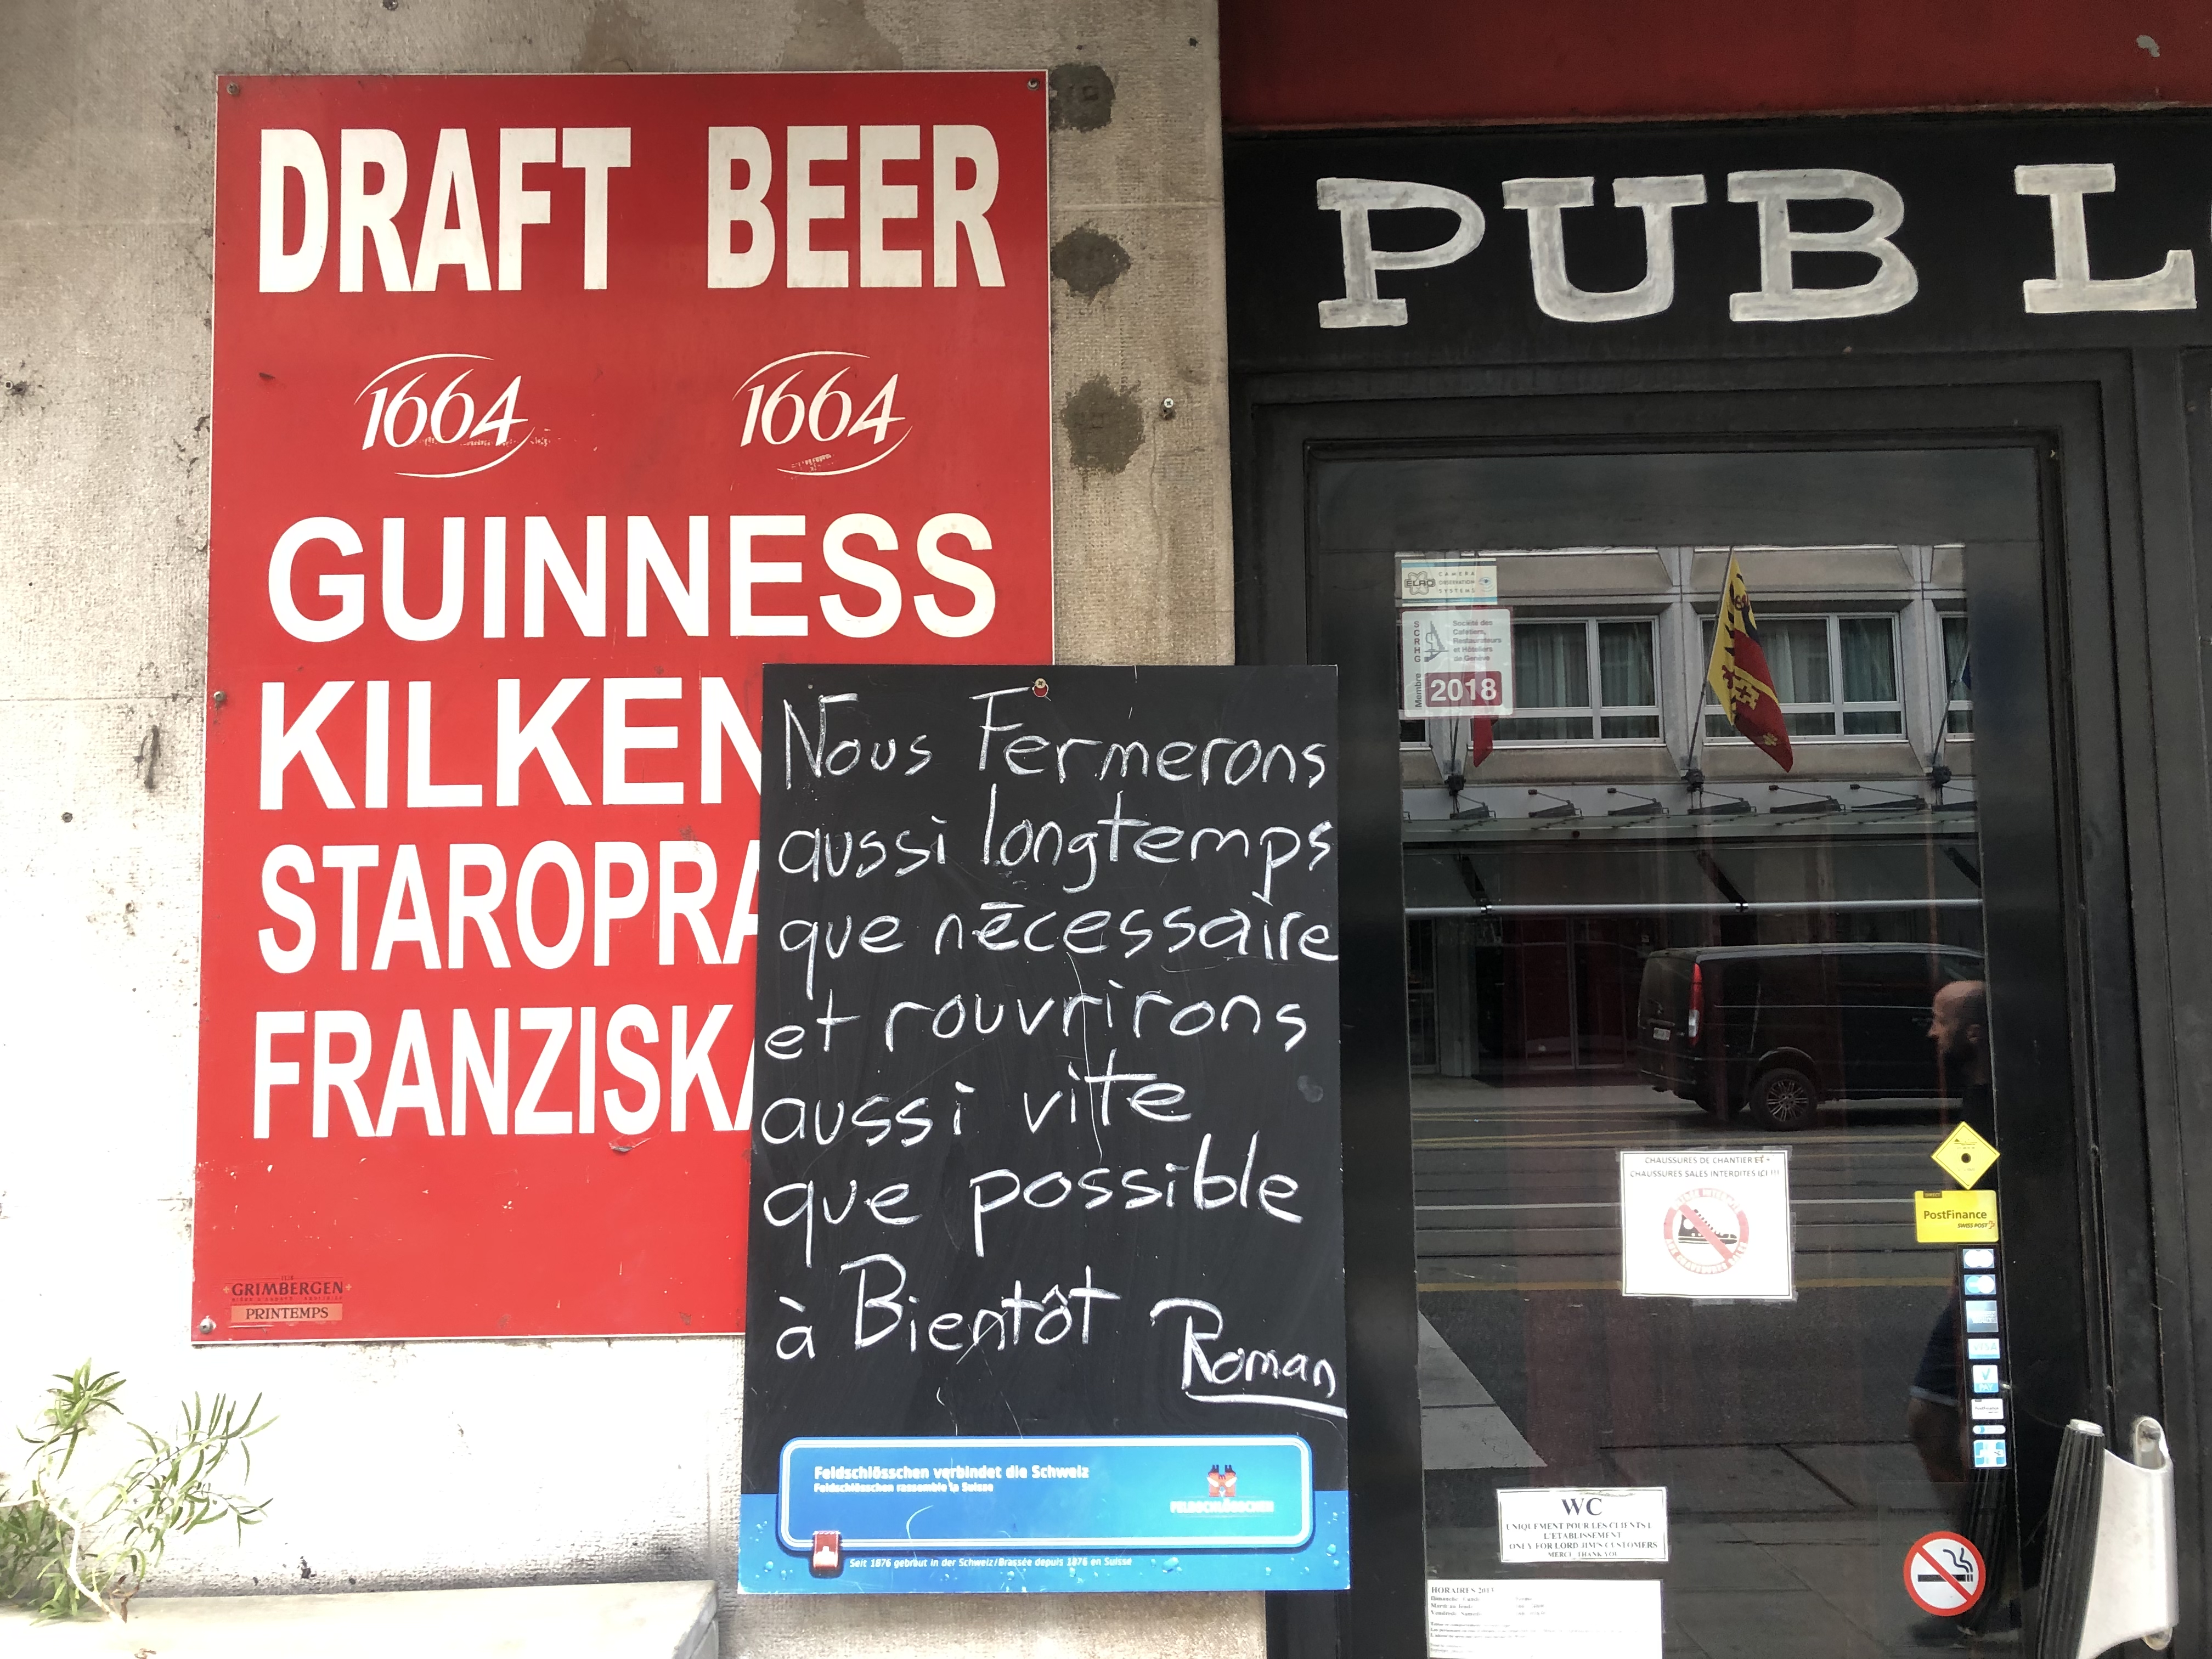 DRAFT BEER
1664 1664
GUINNESS
KILKEN
STAROPRA
FRANZISKA
GRIMBERGEN
PRINTEMPS
Nous Fermerons
aussi longtemps
que nécessaire
et rouvrirons
aussi vite
que possible
à Bientôt
Roman
Feldschlösschen verbindet die Schweiz
Feldschlösschen rassemble la Suisse
FELDSCHLÖSSCHEN
Seit 1876 gebraut in der Schweiz/Brassée depuis 1876 en Suisse
PUB L
ELRO CAMERA
OBSERVATION
SYSTEMS
SCRHG
Société des
Cafetiers,
Restaurateurs
et Hôteliers
de Genève
Membre
2018
CHAUSSURES DE CHANTIER ET
CHAUSSURES SALES INTERDITES ICI !!!
PostFinance
SWISS POST
VISA
WC
UNIQUEMENT POUR LES CLIENTS
L'ETABLISSEMENT
ONLY FOR LORD JIM'S CUSTOMERS
MERCI THANK YOU
HORAIRES